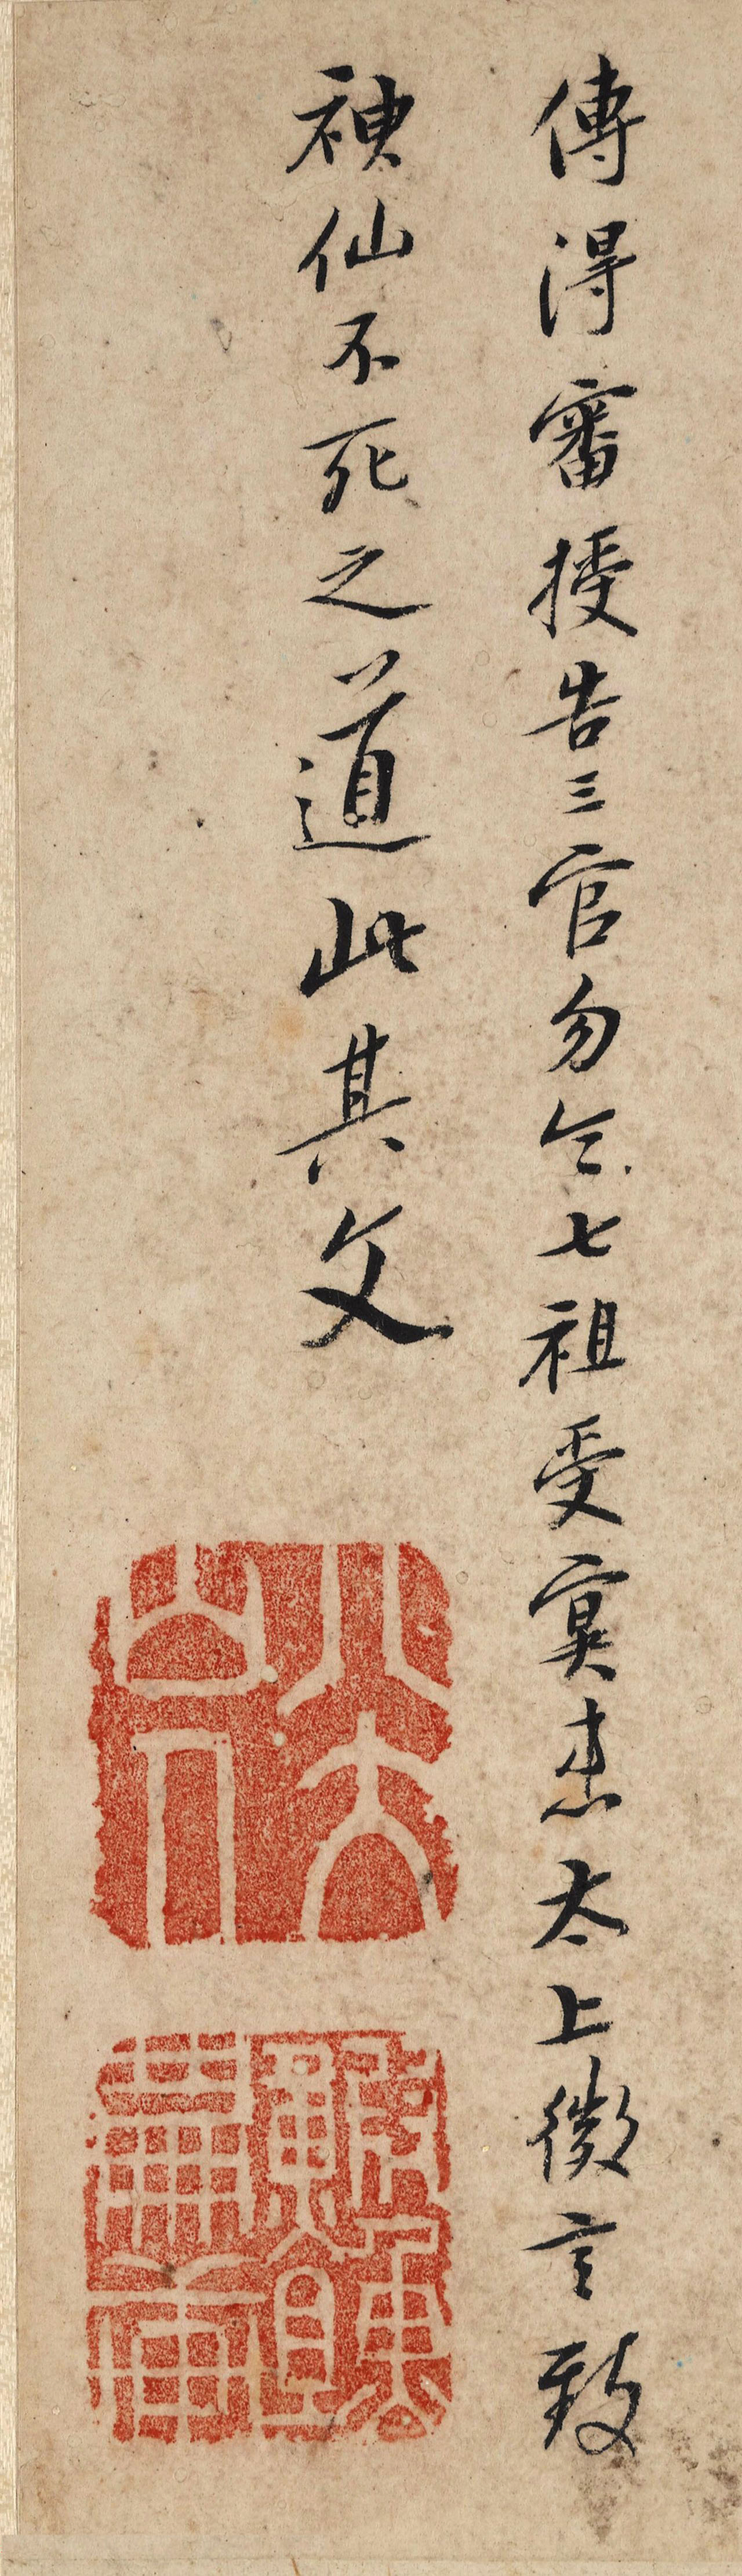 傳得審授告三官勿令七祖受冥患太上微言致
神仙不死之道此其文
八大山人